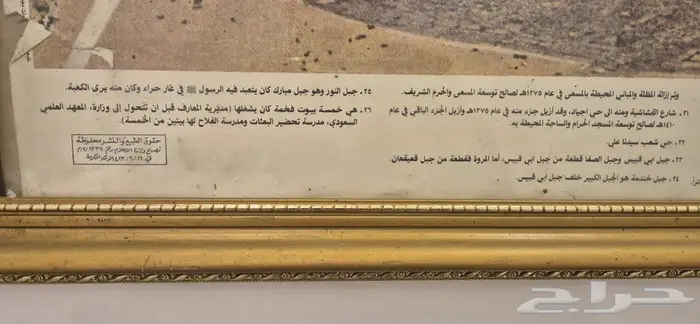 وتم إزالة المظلة والمباني المحيطة بالمسعى في عام ١٣٧٥هـ لصالح توسعة المسعى والحرم الشريف.
٢١. شارع القشاشية ومنه الى حي اجياد، وقد أزيل جزء منه في عام ١٣٧٥هـ وأزيل الجزء الباقي في عام
١٤١٠هـ لصالح توسعة المسجد الحرام والساحة المحيطة به.
٢٢. حي شعب سيدنا علي.
٢٣. جبل ابي قبيس وجبل الصفا قطعة من جبل ابي قبيس، أما المروة فقطعة من جبل قعيقعان.
٢٤. جبل خندمة هو الجبل الكبير خلف جبل أبي قبيس.
٢٥. جبل النور وهو جبل مبارك كان يتعبد فيه الرسول ﷺ في غار حراء وكان منه يرى الكعبة.
٢٦. هي خمسة بيوت فخمة كان يشغلها (مديرية المعارف قبل ان تتحول إلى وزارة، المعهد العلمي
السعودي، مدرسة تحضير البعثات ومدرسة الفلاح لها بيتين من الخمسة).
حقوق الطبع والنشر محفوظة
حراج